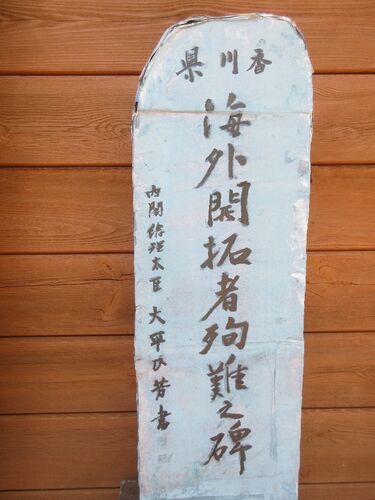 香川県
海外開拓者殉難之碑
内閣総理大臣 大平正芳書